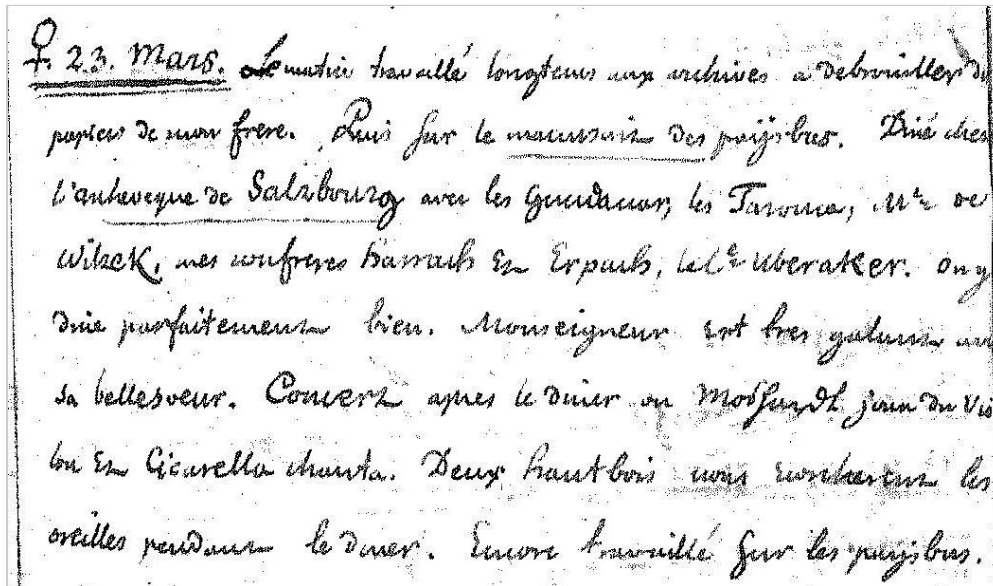 ♀. 23. Mars. Le matin travaillé longtems aux archives a debrouiller des
papiers de mon frere. Puis sur le manuscrit des paÿsbas. Diné chez
l'archeveque de Salzbourg avec les Gundacar, les Tarouca, Mr de
Wilzek, mes confreres Harrach et Erpach, le Cte Uberaker. on y
dine parfaitement bien. Monseigneur est tres galant avec
sa bellesoeur. Concert apres le diner ou joua du Vio
lon et Cicarella chanta. Deux hautbois nous ecorcherent les
oreilles pendant le diner. Encore travaillé sur les paÿsbas.